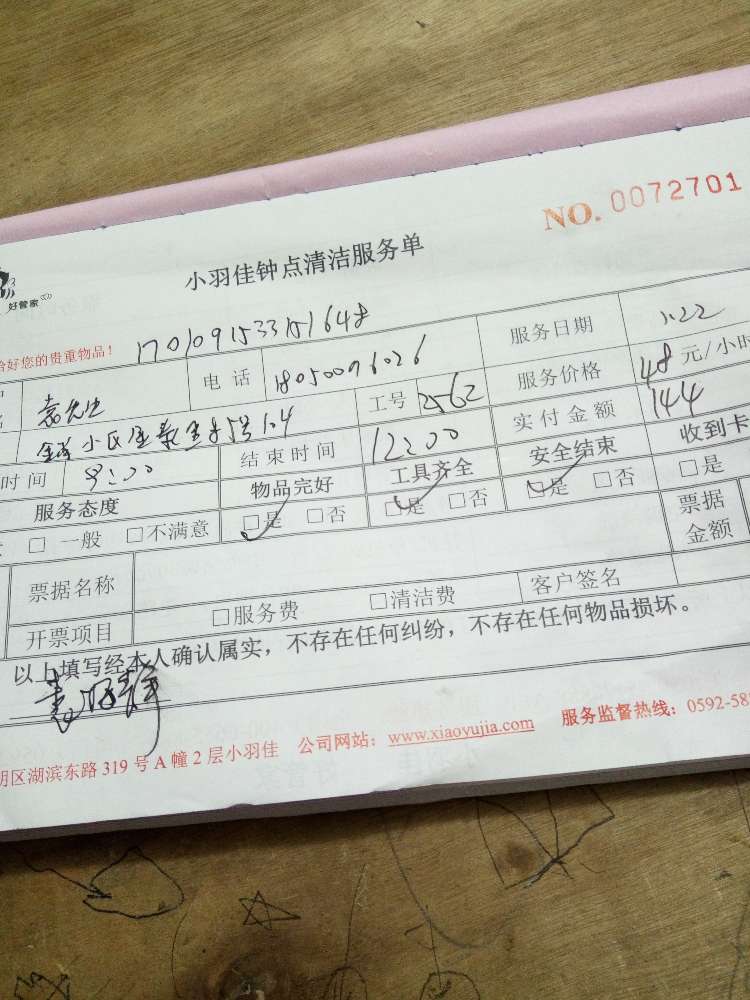 NO. 0072701
小羽佳钟点清洁服务单
好管家
好您的贵重物品! 17010915331515648
电话 18050096026 服务日期 1.22
工号 2562 服务价格 48 元/小时
小区 104
时间 9:00 结束时间 12:00 实付金额 144
服务态度 物品完好 工具齐全 安全结束 收到卡
□ 一般 □不满意 □是 □否 □是 □否 □是 □否 □是
票据名称 票据金额
开票项目 □服务费 □清洁费 客户签名
以上填写经本人确认属实,不存在任何纠纷,不存在任何物品损坏。
明区湖滨东路 319 号 A 幢 2 层小羽佳 公司网站:www.xiaoyujia.com 服务监督热线:0592-58